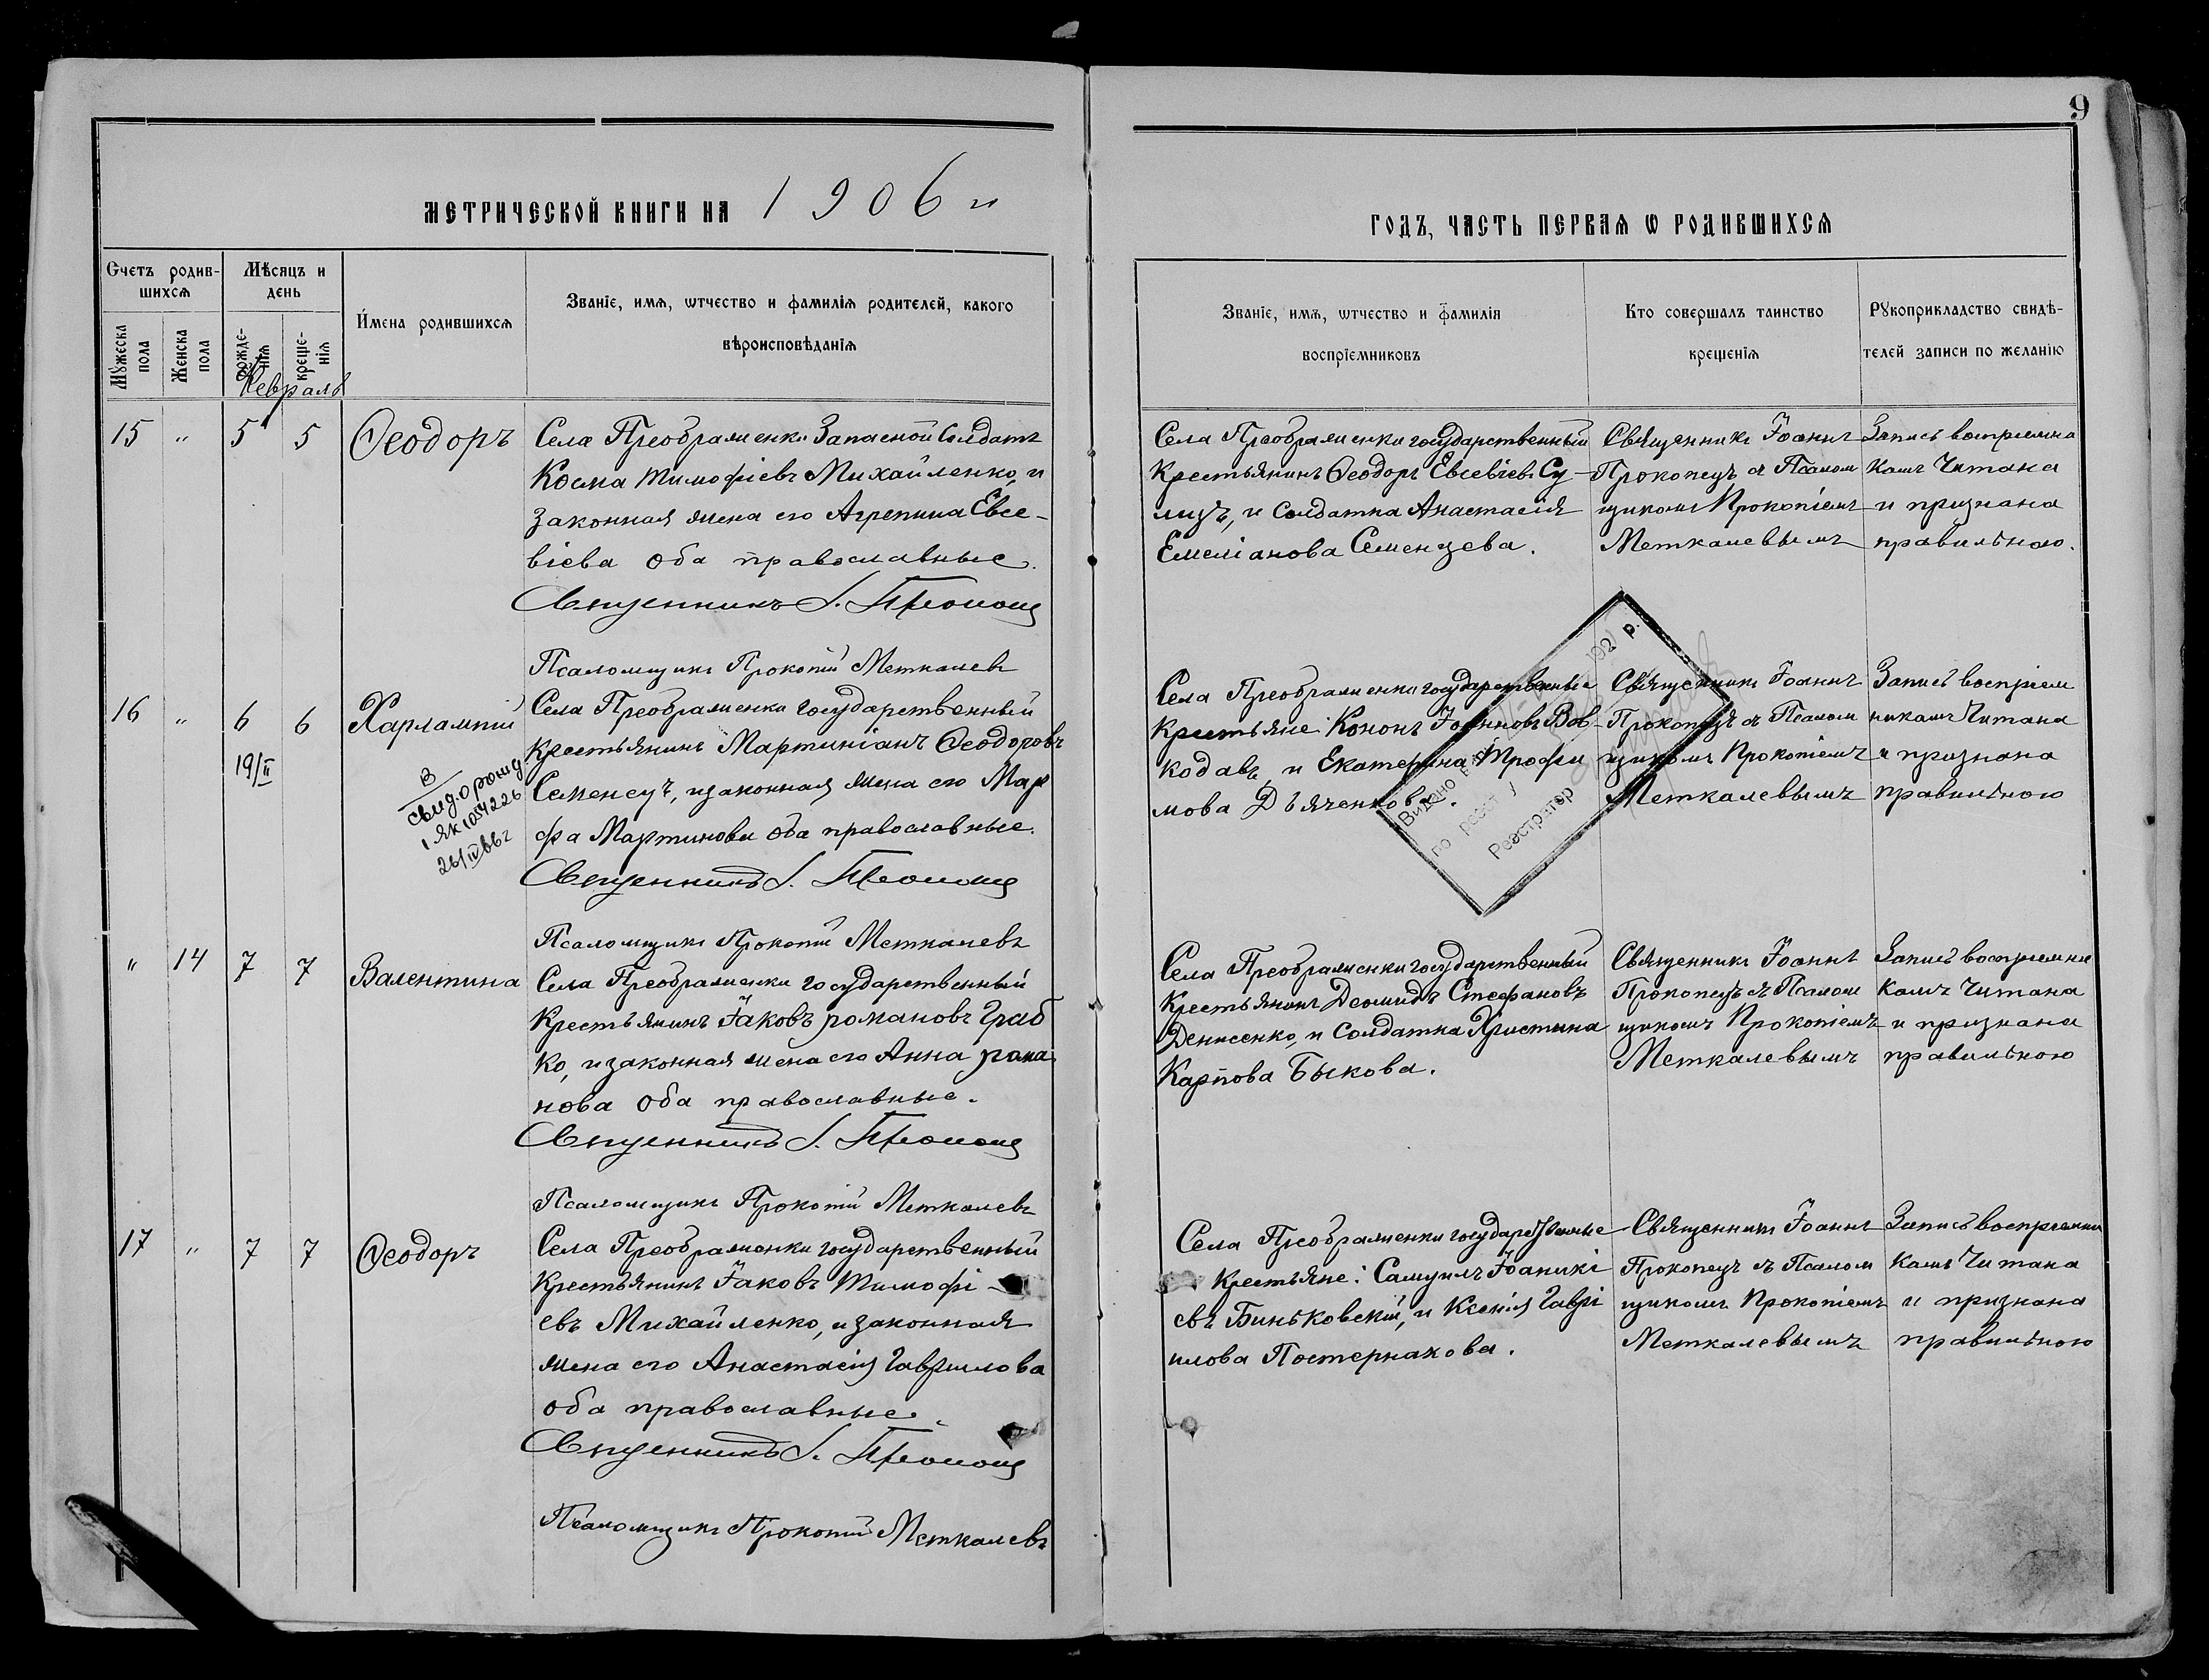 9
МЕТРИЧЕСКОЙ КНИГИ НА 1906 й
ГОДЪ, ЧАСТЬ ПЕРВАѦ Ѡ РОДИВШИХСѦ
Счетъ родив-
шихсѧ
Мѣсяцъ и
день
Имена родившихсѧ
Званіе, имѧ, ѡтчество и фамиліѧ родителей, какого
вѣроисповѣданіѧ
Мужеска
пола
Женска
пола
рожде-
ніѧ
креще-
ніѧ
Февраль
Званіе, имѧ, ѡтчество и фамиліѧ
воспріемниковъ
Кто совершалъ таинство
крещеніѧ
Рукоприкладство свидѣ-
телей записи по желанію
15 " 5 5 Ѳеодоръ
Села Преображенки Запасной Солдатъ
Косма Тимофіевъ Михайленко, и
законная жена его Агрепина Евсе-
віева оба православные.
Священникъ І. Прокопец
Псаломщикъ Прокопій Меткалевъ
Села Преображенки государственный
Крестьянинъ Ѳеодоръ Евсевіевъ Су-
лизъ, и солдатка Анастасія
Емеліанова Семенцева.
Священникъ Іоаннъ
Прокопецъ съ Псалом
щикомъ Прокопіемъ
Меткалевымъ
Запись воспріемни
камъ Читана
и признана
правильною.
16 " 6 6 Харлампій
19/II
В
свид. о рожд
I ЯК 1054226
26/IV 66г
Села Преображенки государственный
крестьянинъ Мартиніанъ Ѳеодоровъ
Семенсуъ, и законная жена его Мар
фа Мартинова оба православные.
Священникъ І. Прокопец
Псаломщикъ Прокопій Меткалевъ
Села Преображенки государственные
Крестьяне: Кононъ Іоанновъ Вов-
кодавъ, и Екатерина Трофи
мова Дьяченкова.
Священникъ Іоаннъ
Прокопецъ съ Псалом
щикомъ Прокопіемъ
Меткалевымъ
Запись воспріем
никамъ Читана
и признана
правильною
Видано
192 р.
по реєст
Реєстратор
" 14 7 7 Валентина
Села Преображенки государственный
Крестьянинъ Іаковъ Романовъ Граб
ко, и законная жена его Анна Рома
нова оба православные.
Священникъ І. Прокопец
Псаломщикъ Прокопій Меткалевъ
Села Преображенки государственный
Крестьянинъ Деомидъ Стефановъ
Денисенко, и солдатка Христина
Карпова Быкова.
Священникъ Іоаннъ
Прокопецъ съ Псалом
щикомъ Прокопіемъ
Меткалевымъ
Запись воспріемни
камъ Читана
и признана
правильною
17 " 7 7 Ѳеодоръ
Села Преображенки государственный
Крестьянинъ Іаковъ Тимофі-
евъ Михайленко, и законная
жена его Анастасія Гаврилова
оба православные.
Священникъ І. Прокопец
Псаломщикъ Прокопій Меткалевъ
Села Преображенки государственные
Крестьяне: Самуилъ Іоаникі
евъ Биньковскій, и Ксенія Гаврі
илова Постернакова.
Священникъ Іоаннъ
Прокопецъ съ Псалом
щикомъ Прокопіемъ
Меткалевымъ
Запись воспріемни
камъ Читана
и признана
правильною